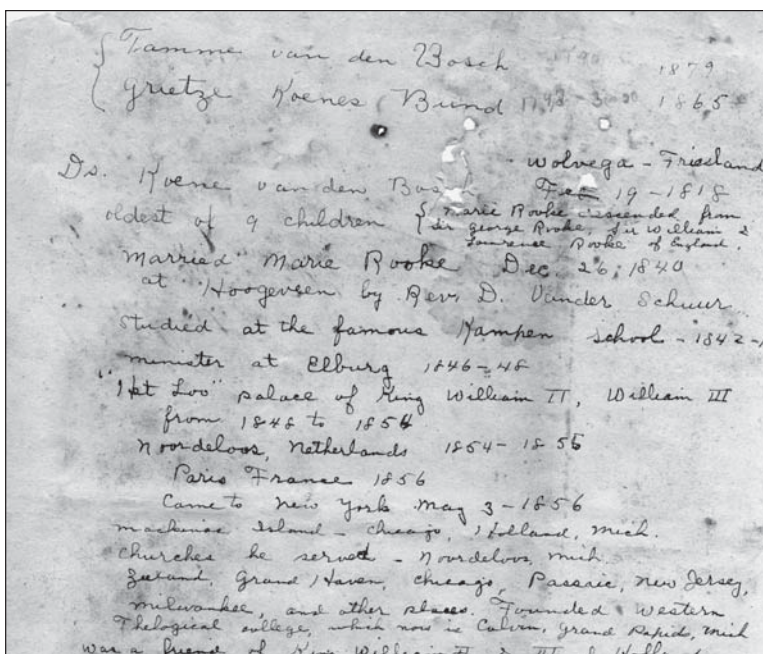 Tamme van den Bosch 1790 1879
Grietze Koenes Bund 1793-3-20 1865
wolvega - Friesland
Ds. Koene van den Bosch 19-1818
oldest of 9 children { Marie Rooke descended from
Sir George Rooke, Sir William &
Lawrence Rooke of England.
Married Marie Rooke Dec. 26, 1840
at Hoogeveen by Rev. D. Vander Schuur
Studied at the famous Kampen school - 1842-
minister at Elburg 1846-48
"Het Loo" palace of King William II, William III
from 1848 to 1854
Noordeloos, Netherlands 1854-1856
Paris France 1856
Came to New York May 3-1856
Mackinac Island - Chicago, Holland, Mich.
Churches he served - Noordeloos, Mich.
Zeeland, Grand Haven, Chicago, Passaic, New Jersey,
Milwaukee, and other places. Founded Western
Thelogical college, which now is Calvin, Grand Rapids, Mich
was a friend of King William II & III of Holland